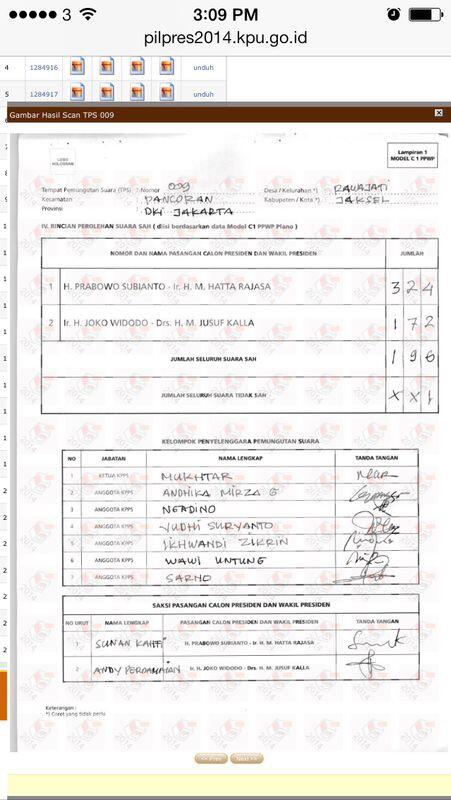 3 3:09 PM
pilpres2014.kpu.go.id
4 1284916 unduh
5 1284917 unduh
Gambar Hasil Scan TPS 009
Lampiran 1
MODEL C 1 PPWP
Tempat Pemungutan Suara (TPS) : Nomor 009 Desa / Kelurahan *) : RAWAJATI
Kecamatan : PANCORAN Kabupaten / Kota *) : JAKSEL
Provinsi : DKI JAKARTA
IV. RINCIAN PEROLEHAN SUARA SAH ( diisi berdasarkan data Model C1 PPWP Plano )
NOMOR DAN NAMA PASANGAN CALON PRESIDEN DAN WAKIL PRESIDEN JUMLAH
1 H. PRABOWO SUBIANTO - Ir. H. M. HATTA RAJASA 3 2 4
2 Ir. H. JOKO WIDODO - Drs. H. M. JUSUF KALLA 1 7 2
JUMLAH SELURUH SUARA SAH 1 9 6
JUMLAH SELURUH SUARA TIDAK SAH X X 1
KELOMPOK PENYELENGGARA PEMUNGUTAN SUARA
NO JABATAN NAMA LENGKAP TANDA TANGAN
1 KETUA KPPS MUKHTAR
2 ANGGOTA KPPS ANDHIKA MIRZA G
3 ANGGOTA KPPS NGADINO
4 ANGGOTA KPPS YUDHI SURYANTO
5 ANGGOTA KPPS IKHWANDI ZIKRIN
6 ANGGOTA KPPS WAWI UNTUNG
7 ANGGOTA KPPS SARNO
SAKSI PASANGAN CALON PRESIDEN DAN WAKIL PRESIDEN
NO URUT NAMA LENGKAP PASANGAN CALON PRESIDEN DAN WAKIL PRESIDEN TANDA TANGAN
1 SUNAN KAHFI H. PRABOWO SUBIANTO - Ir. H. M. HATTA RAJASA
2 ANDY PERDAMAIAN Ir. H. JOKO WIDODO - Drs. H. M. JUSUF KALLA
Keterangan :
*) Coret yang tidak perlu
<< Prev Next >>